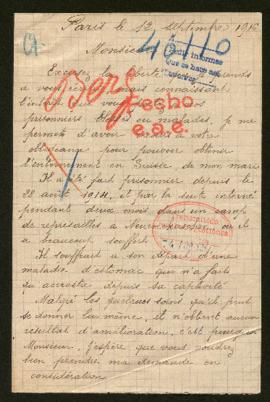 Paris le 12 septembre 1916
40110
Monsieur
Excusez la liberté que je prends
à vous mais connaissant
l'intérêt que vous
prisonniers blessés ou malades, je me
permets d'avoir à votre
obligeance pour pouvoir obtenir
l'internement en Suisse de mon mari
Il a été fait prisonnier depuis le
28 août 1914, et par la suite interné
pendant deux mois dans un camp
de représailles à où il
a beaucoup souffert.
Il souffrait à son départ d'une
maladie d'estomac qui n'a fait
qu'accroître depuis sa captivité
Malgré les quelques soins qu'il peut
se donner lui même, il n'obtient aucun
résultat d'amélioration, c'est pourquoi
Monsieur, j'espère que vous voudrez
bien prendre ma demande en
considération
hecho